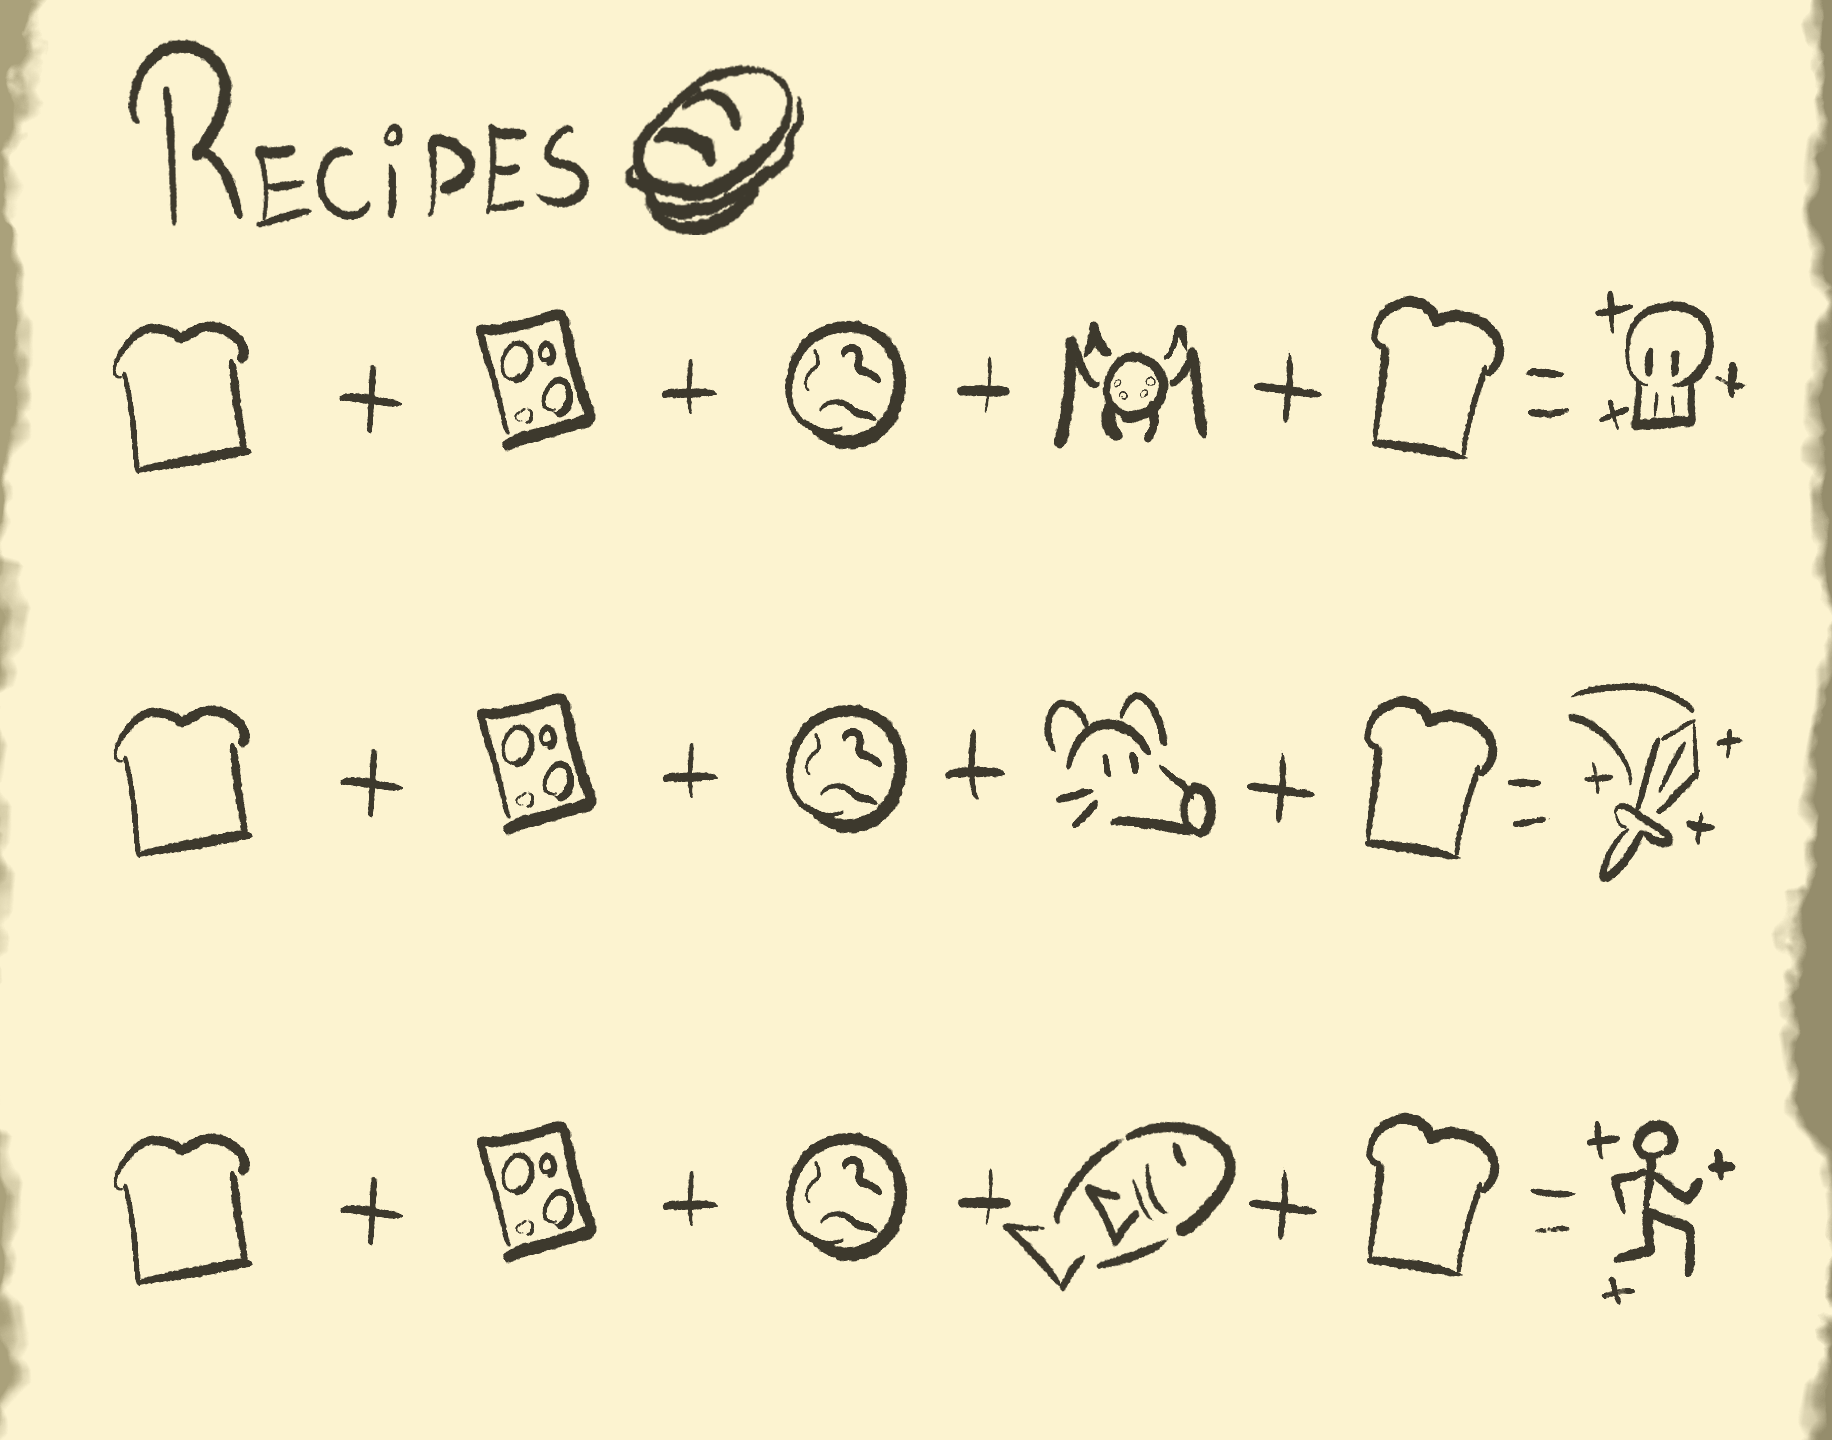 RECiPES
+ + + + =
+ + + + =
+ + + + =